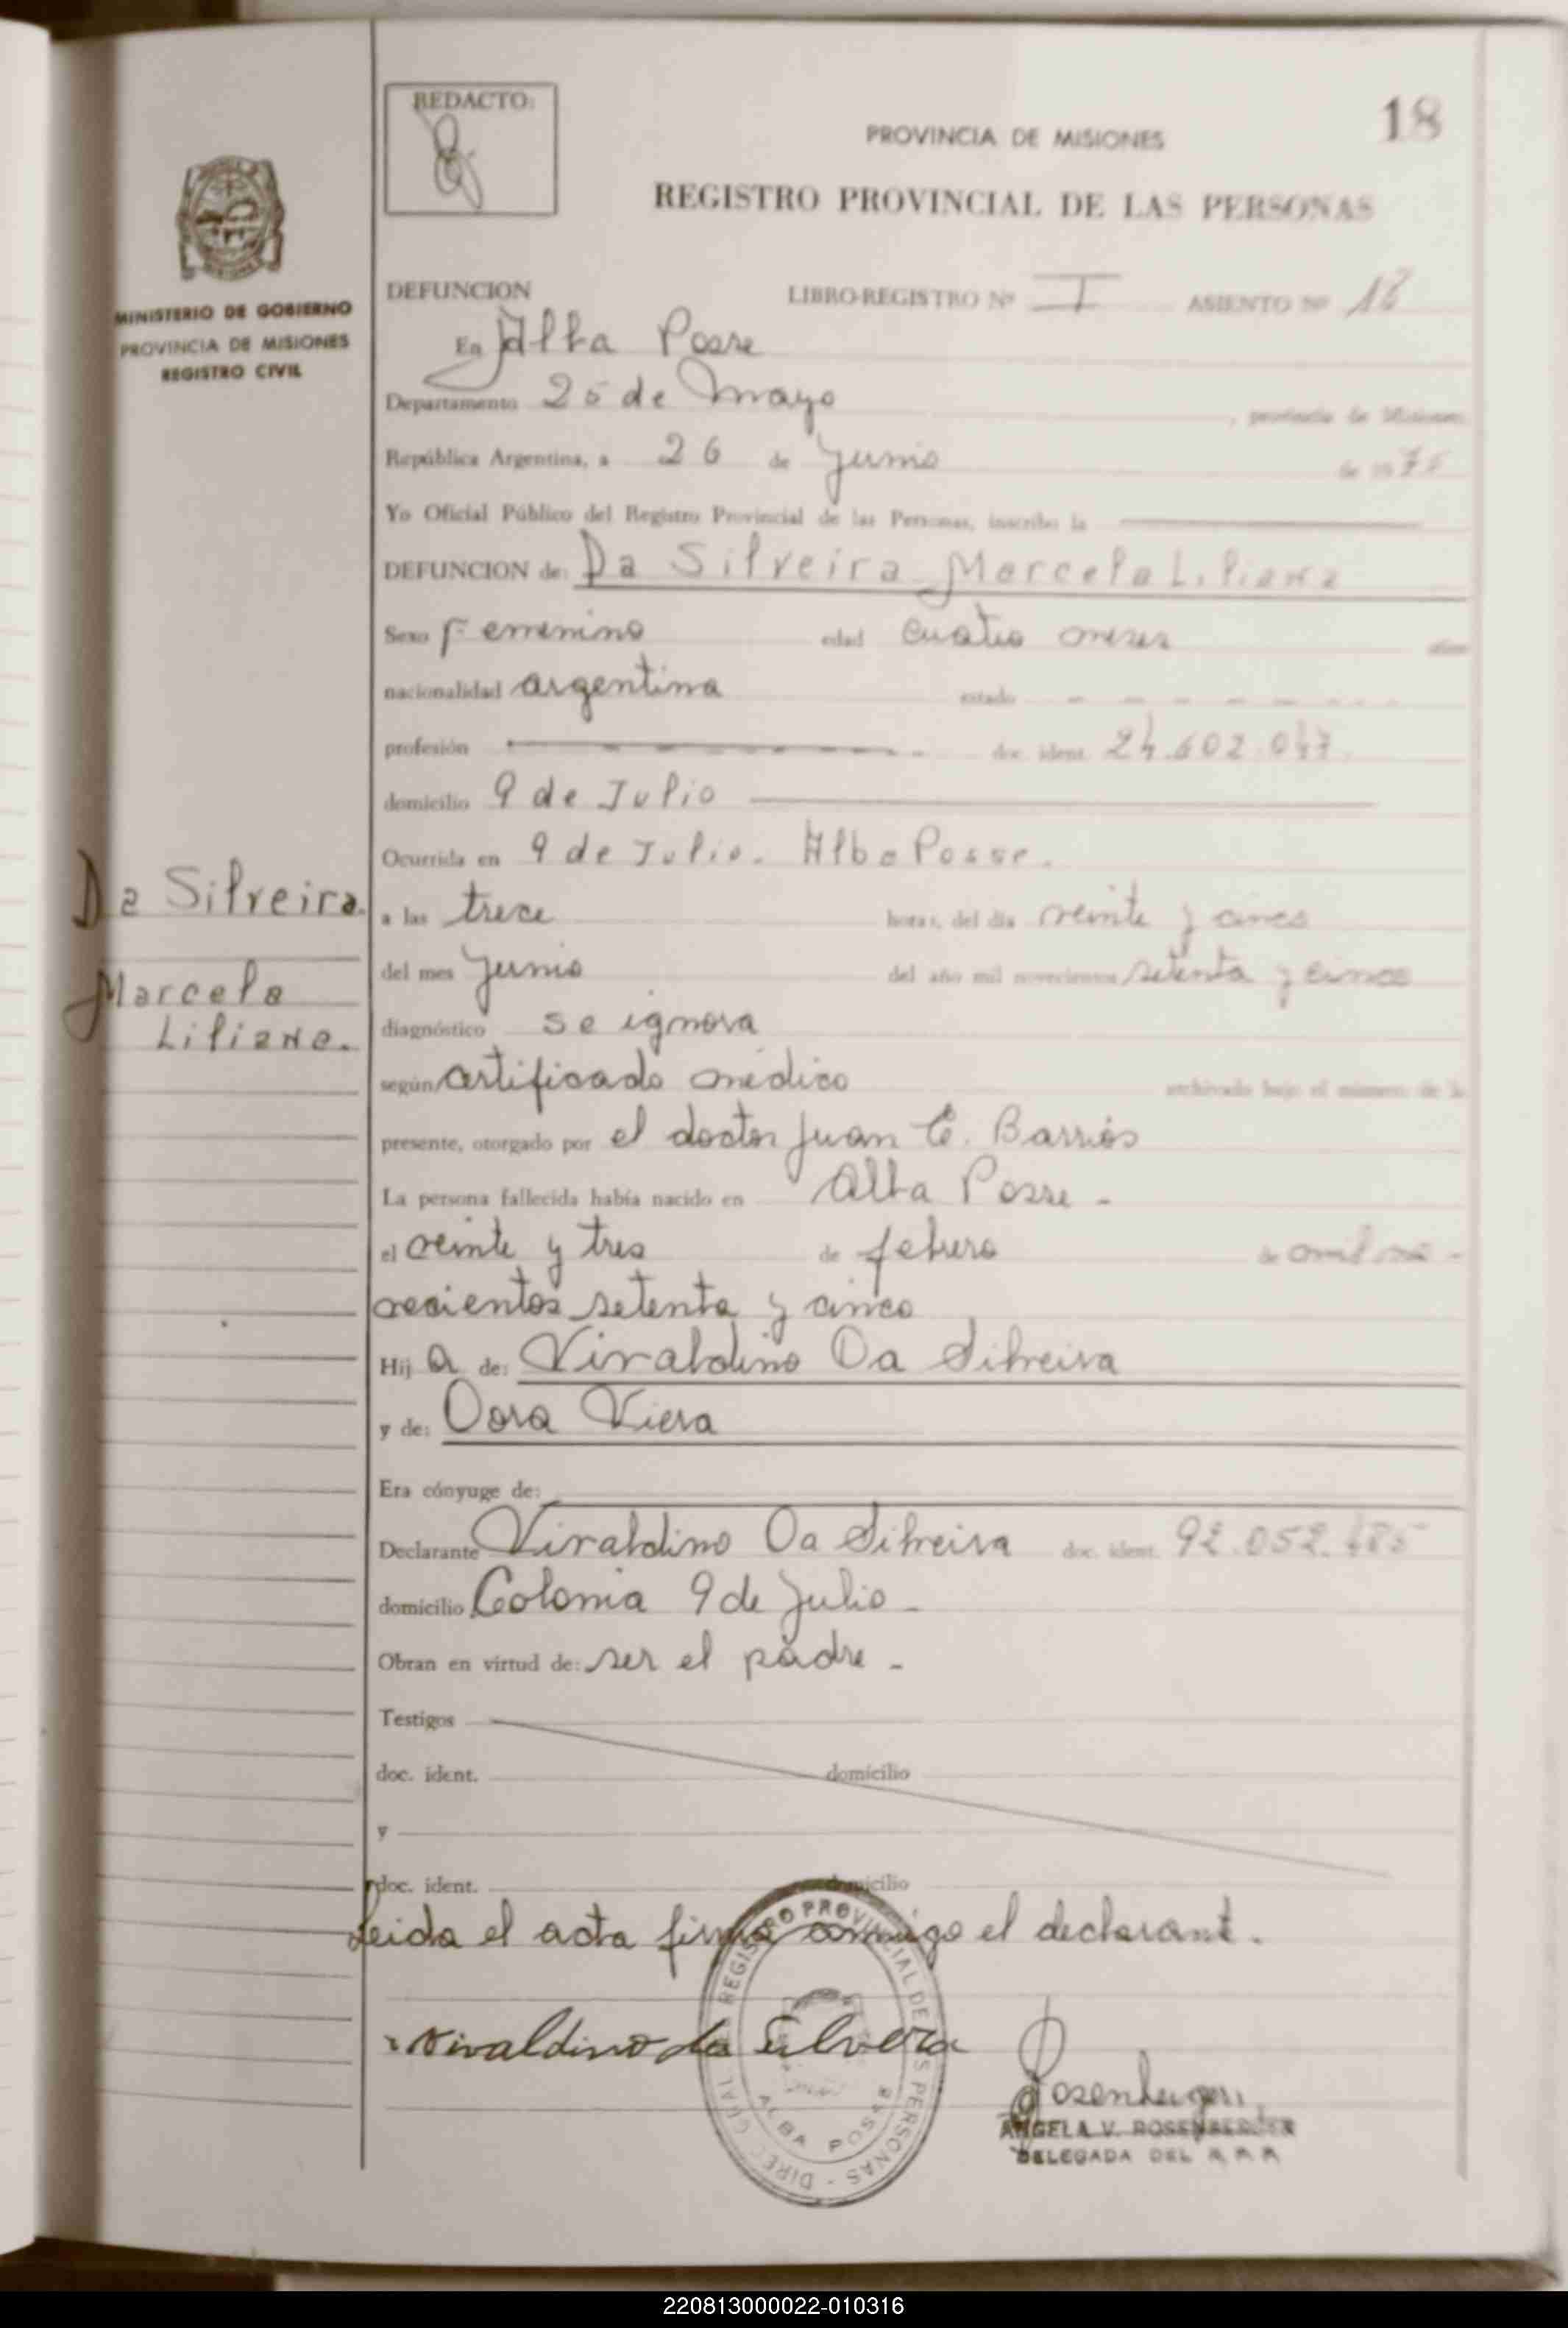 18
REDACTO:
PROVINCIA DE MISIONES
REGISTRO PROVINCIAL DE LAS PERSONAS
MINISTERIO DE GOBIERNO
PROVINCIA DE MISIONES
REGISTRO CIVIL
DEFUNCION LIBRO-REGISTRO Nº I ASIENTO Nº 18
En Alba Posse
Departamento 25 de Mayo, provincia de Misiones,
República Argentina, a 26 de Junio de 1975
Yo Oficial Público del Registro Provincial de las Personas, inscribo la
DEFUNCION de: Da Silveira Marcela Liliana
Sexo Femenino edad cuatro meses años
nacionalidad argentina estado
profesión doc. ident. 24.602.047
domicilio 9 de Julio
Ocurrida en 9 de Julio. Alba Posse.
Da Silveira.
Marcela
Liliana.
a las trece horas, del día veinte y cinco
del mes Junio del año mil novecientos setenta y cinco
diagnóstico se ignora
según certificado médico archivado bajo el número de la
presente, otorgado por el doctor Juan C. Barrios
La persona fallecida había nacido en Alba Posse -
el veinte y tres de febrero de mil no -
vecientos setenta y cinco
Hij a de: Viraldino Da Silveira
y de: Dora Viera
Era cónyuge de:
Declarante Viraldino Da Silveira doc. ident. 92.052.485
domicilio Colonia 9 de Julio -
Obran en virtud de: ser el padre -
Testigos
doc. ident. domicilio
y
doc. ident. domicilio
Leida el acta firma conmigo el declarant.
Nivaldino da Silvera
Rosenberger
ANGELA V. ROSENBERGER
DELEGADA DEL R P P
DIREC. GRAL. DEL REGISTRO PROVINCIAL DE LAS PERSONAS -
ALBA POSSE
220813000022-010316